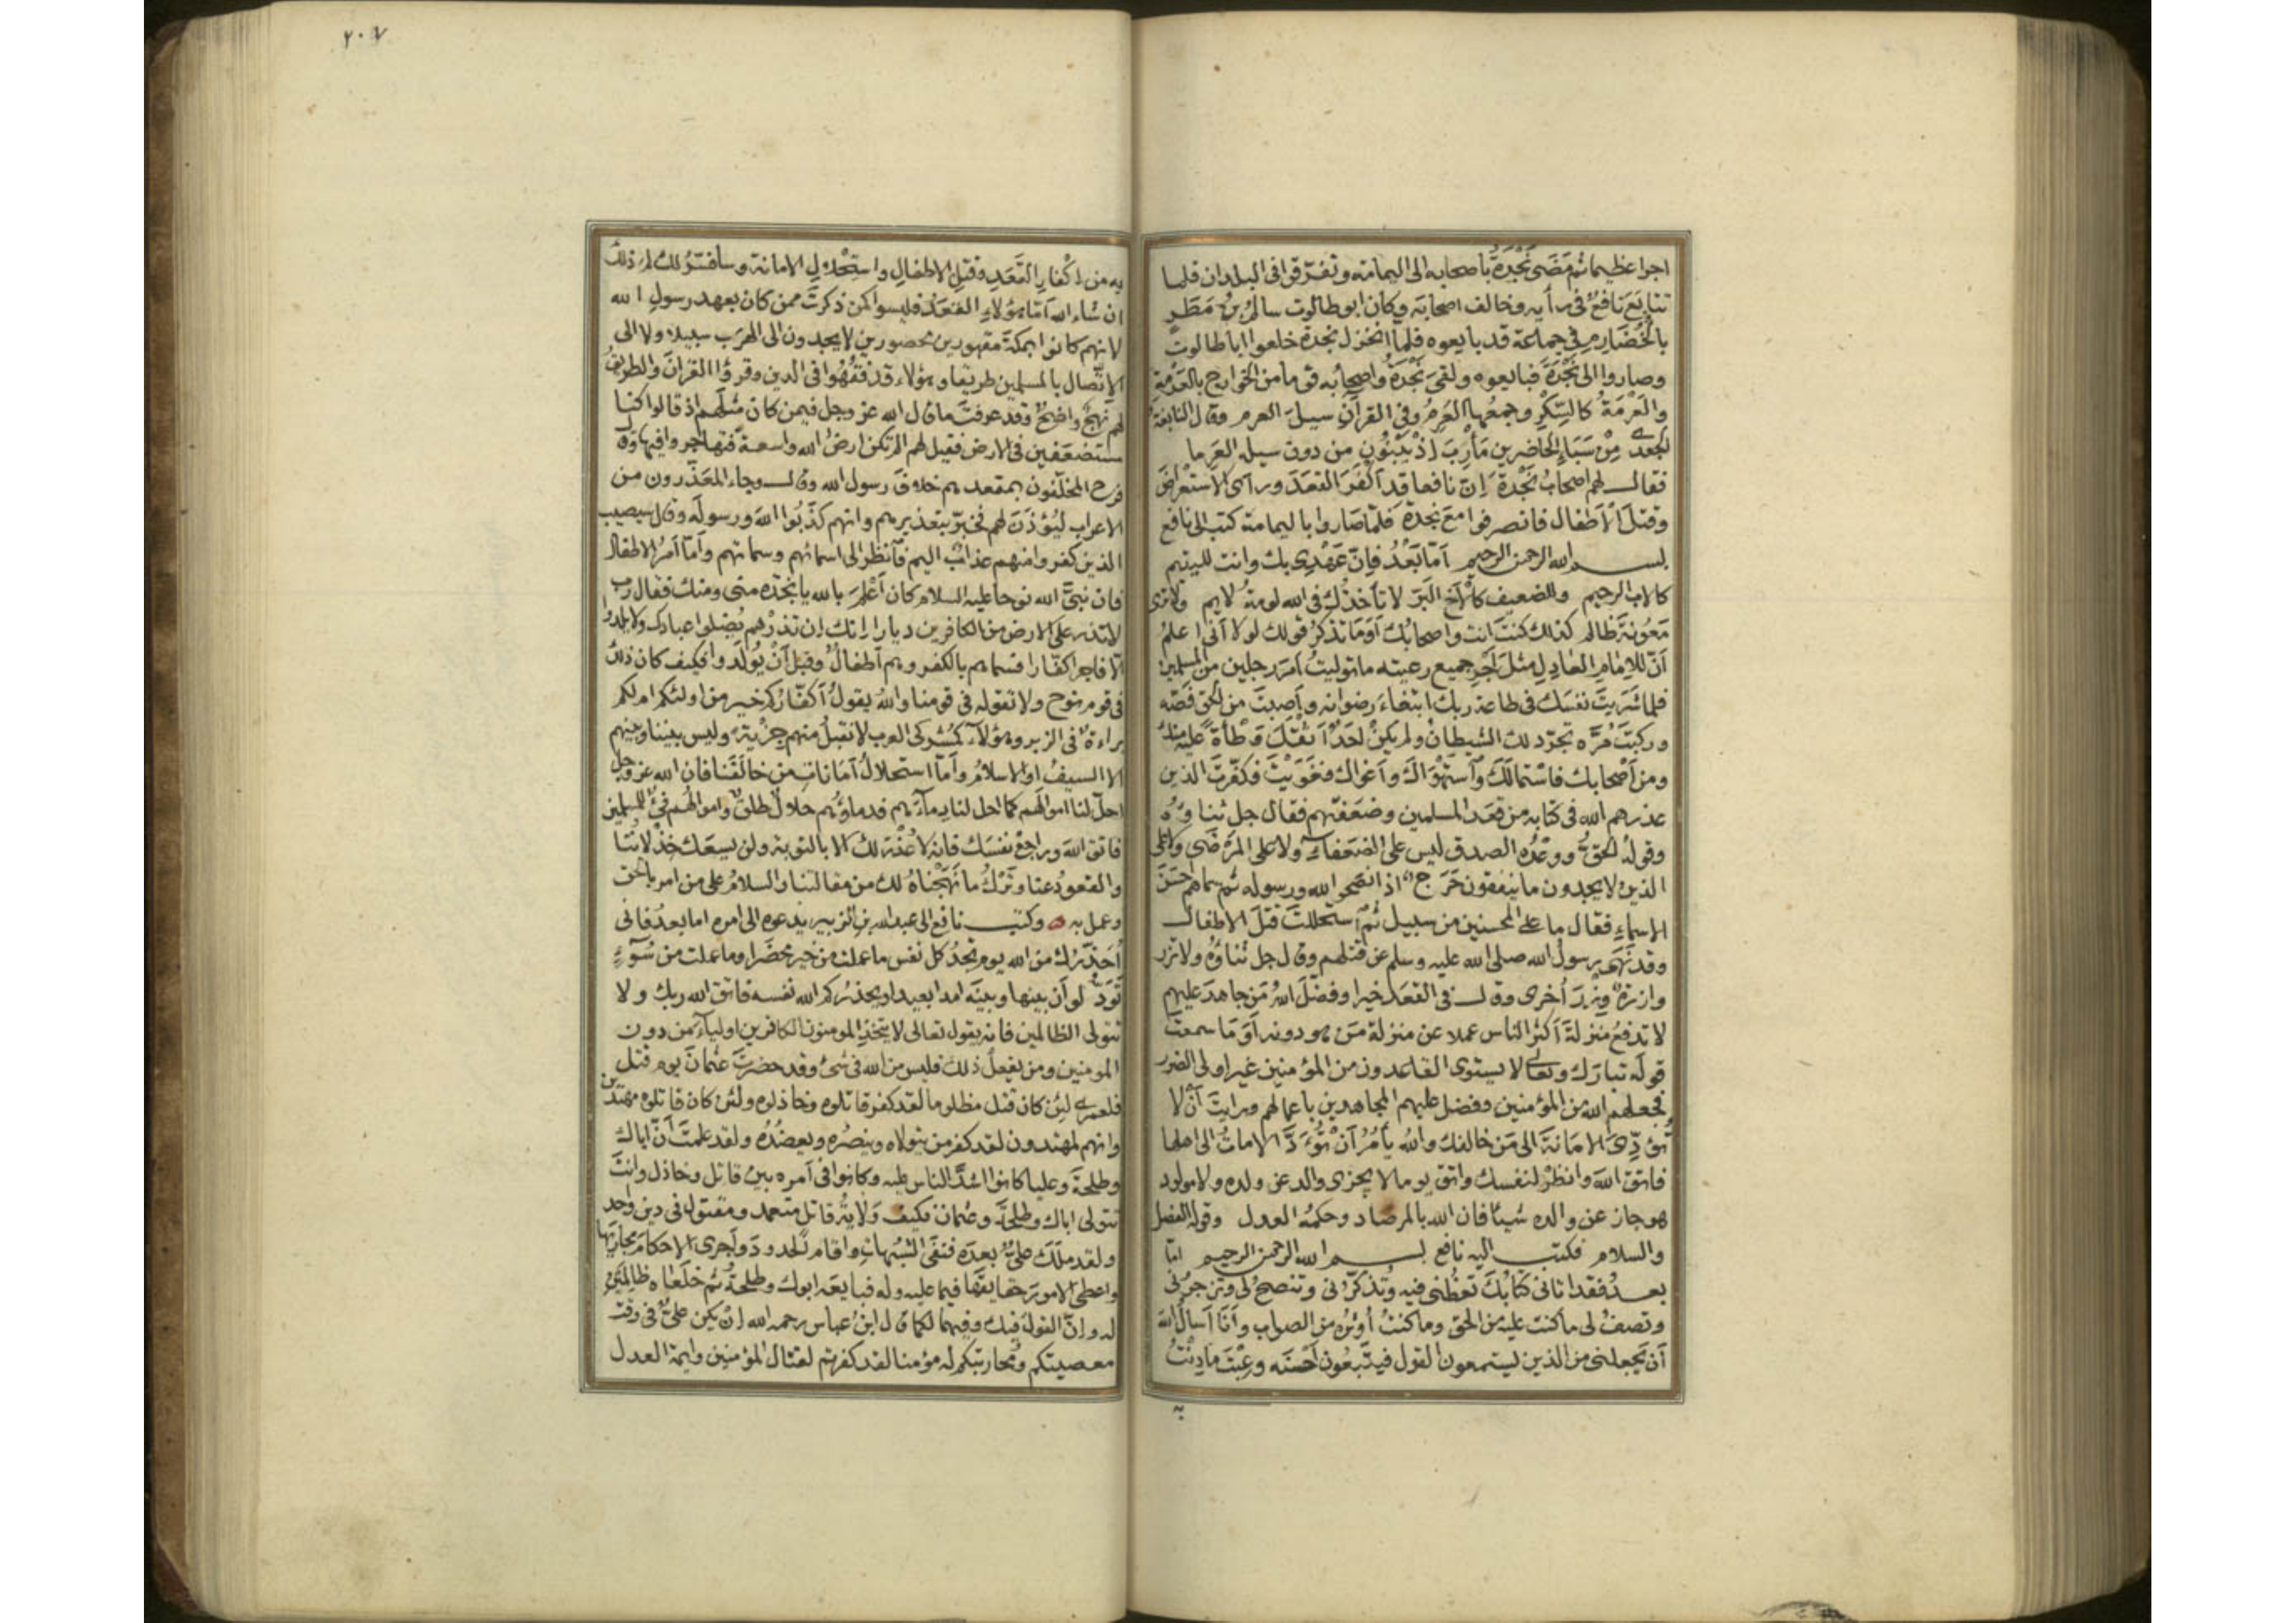 اجرا عظيما ثم مَضَى نَجْدَةُ بأصحابه الى اليمامة وتفرّقوا فى البلدان فلما
تتابَعَ نافعٌ فى رأيه وخالف اصحابَه وكان ابو طالوت سالمُ بْنُ مَطَرٍ
بالخُضَارِمِ فى جماعة قد بايعوه فلمّا انخزل نجدة خلعوا ابا طالوت
وصاروا الى نَجْدَةَ فبايعوه ولقىَ نَجْدَةُ واصحابُه قوما من الخوارج بالعَرَمَةِ
والعَرَمَةُ كالسِّكْرِ وجمعُها العَرِمُ وفى القرآن سيلَ العرم وقال النابغة
الجعدى مِنْ سَبَاءِ الحَاضرين مَأْرِبَ اذ يَبْنُونَ من دون سيله العَرِما
فقال لهم اصحابُ نَجْدَةَ إنّ نافعا قد أَكْفَرَ القَعَدَ ورأى الاستعْراضَ
وقَتْلَ الأَطْفال فانصرفوا مع نجدة فلمّا صَاروا باليمامة كتب الى نافع
بسم الله الرحمن الرحيم أمّا بَعْدُ فإنّ عَهْدِى بك وانت لليتيم
كالاب الرحيم وللضعيف كالأَخِ البَرّ لا تأخذُك فى الله لومةُ لايم ولا ترى
مَعُونَةَ ظالم كذلك كنتَ انت واصحابُك أوَمَا تذكرُ قولك لولا أنى اعلمُ
أنّ للإمامِ العَادِلِ مثلَ أَجْرِ جميع رعيته ما توليتُ أمرَ رجلين من المسلمين
فلما شَرَيتَ نفسَك فى طاعة ربك ابتغاءَ رضوانه وأصبتَ من الحَقّ فَصّه
وركبتَ مُرَّه تجرّد لك الشيطانُ ولم يكنْ أحدٌ أثقلَ وَطْأةً عليه منك
ومن أَصْحابك فاسْتَمالَكَ واستَهْوَاكَ وأغواك فغَوَيْتَ فكفّرتَ الذين
عذرهم الله فى كتابه من قَعَدِ المسلمين وضَعَفَتِهم فقال جل ثناؤُه
وقولُه الحقُّ ووَعْدُه الصدق ليس على الضعفاءِ ولا على المَرْضَى ولا على
الذين لا يجدون ما ينفقون حَرَجٌ اذا نصحوا لله ورسوله ثم سماهم احسَنَ
الاسماءِ فقال ما على المحسنين من سبيل ثم استحللتَ قتلَ الاطفال
وقد نَهَى رسولُ الله صلى الله عليه وسلم عن قتلهم وقال جل ثناؤُهُ ولا تزر
وازرةٌ وِزْرَ أُخرى وقال فى القَعَدِ خيرا وفضّلَ اللهُ مَن جاهدَ عليهم
لا تدفعُ منزلةَ أكثرِ الناس عملا عن منزلة مَن هو دونه أوَ مَا سمعتَ
قولَه تبارك وتعالى لا يستوى القاعدون من المؤمنين غير اولى الضرر
فجعلهم الله من المؤمنين وفضل عليهم المجاهدين باعمالهم ورايتَ أن لا
تُؤدّىَ الامَانةَ الى مَن خالفك واللهُ يأمُرُ أنْ تُؤَدَّى الاماناتُ الى اهلها
فاتق اللهَ وانظُرْ لنفسك واتق يوما لا يجزى والد عن ولده ولا مولود
هو جاز عن والده شيئا فان الله بالمرصاد وحكمُه العدل وقولُه الفصل
والسلام فكتب اليه نافع بسم الله الرحمن الرحيم امّا
بعدُ فقد اتانى كتابُكَ تعِظُنى فيه وتُذكّرُنى وتنصحُ لى وتزجرُنى
وتصفُ لى ما كنت عليه من الحق وما كنتُ أُوثرُه من الصواب وأنَا أسأل اللهَ
أن يَجعلنى من الذين يستمعون القول فيتّبعُون أحْسَنَه وعِبْتَ ما دِنْتُ
به
٢٠٧
به من إكْفَارِ القَعَدِ وقتلِ الاطفالِ واستِحْلالِ الامانة وسأفسّرُ لك لِمَ ذلك
ان شاء الله أمّا هؤلاءِ القَعَدُ فليسوا كمن ذكرتَ ممن كان بعهد رسولِ الله
لانهم كانوا بمكّةَ مقهورين محصورين لا يجدون الى الهَرَب سبيلا ولا الى
الاتّصال بالمسلمين طريقا وهؤلاء قد فَقُهُوا فى الدين وقرؤا القُرانَ والطريقُ
لهم نَهْجٌ واضحٌ وقد عرفتَ ما قال الله عز وجل فيمن كان مثلَهم اذ قالوا كنا
مستضعَفين فى الارض فقيل لهم الم تكن ارضُ الله واسعةً فتهاجروا فيها وقال
فرح المخلّفون بمقعدهم خلافَ رسول الله وقال وجاء المعَذّرون من
الاعراب ليُؤْذَنَ لهم فخبّر بتعذيرهم وانهم كذَبُوا اللهَ ورسولَه وقال سيصيب
الذين كفروا منهم عذابٌ اليم فانظر الى اسمائهم وسماتهم وأمّا أمرُ الاطفال
فان نبىَّ الله نوحا عليه السلام كان أَعْلَمَ بالله يا نجدة منى ومنك فقال رب
لا تذر على الارض من الكافرين ديارا إنك إن تذرْهم يُضلوا عبادك ولا يلدوا
إلّا فاجرا كفّارا فسماهم بالكفر وهم أطفالٌ وقبل أنْ يُولَدوا فكيف كان ذلك
فى قوم نوح ولا تقوله فى قومنا واللهُ يقولُ أكفّارُكم خير من اولئكم ام لكم
براءةٌ فى الزبر وهؤلاءِ كمُشركى العرب لا نقبلُ منهم جِزْيةً وليس بيننا وبينهم
الا السيفُ او الاسلامُ وأمّا استحلالُ أمَاناتِ من خالَفَنا فان الله عز وجل
احلّ لنا اموالَهم كما احل لنا دِماءَهم فدماؤُهم حلالٌ طلقٌ واموالُهم فىْءٌ للمسلمين
فاتق اللهَ وراجِعْ نفسَك فانه لا عُذْرَ لك الا بالتوبة ولن يسعَك خِذْلانُنا
والقعودُ عنا وتَرْكُ ما نَهَجْناهُ لك من مقالتنا والسلامُ على من اقر بالحق
وعمل به ه وكتب نافع الى عبد الله بن الزبير يدعوه الى امره اما بعدُ فانى
أُحَذّرُكَ من الله يوم تجدُ كل نفس ما عملت من خير محضَرا وما عملت من سُوءٍ
تَوَدُّ لو أن بينها وبينَه امدا بعيدا ويحذرُكم الله نفسه فاتق الله ربك ولا
تتولى الظالمين فانه يقول تعالى لا يتخذِ المومنون الكافرين اولياءَ من دون
المومنين ومن يفعلْ ذلك فليس من الله فى شئ وقد حضرتَ عثمانَ يوم قتل
فلعمرى لئن كان قتل مظلوما لقد كفر قاتلوه وخاذلوه ولئن كان قاتلوه مهتدين
وانهم لمهتدون لقد كفر من يتولاه وينصُرُه ويعضُدُه ولقد علمتَ أنّ اباك
وطلحةَ وعليا كانوا اشدَّ الناس عليه وكانوا فى أمره بين قاتل وخاذل وانتَ
تتولى اباك وطلحةَ وعثمان فكيف وَلايةُ قاتل متعمد ومقتول فى دين واحد
ولقد ملَكَ علىٌّ بعدَه فنَفَى الشُّبهاتِ واقام الحدودَ وأجرى الاحكامَ مجاريَها
واعطى الامورَ حقايقَها فيما عليه وله فبايعَه ابوك وطلحةُ ثم خلَعَاه ظالِمَيْنِ
له وإنّ القولَ فيك وفيهما لكما قال ابنُ عباس رحمه الله إنْ يكن علىٌّ فى وقت
معصيتكم ومُحاربتكم له مؤمنا لقد كفرتم لقتال المؤمنين وايمة العدل